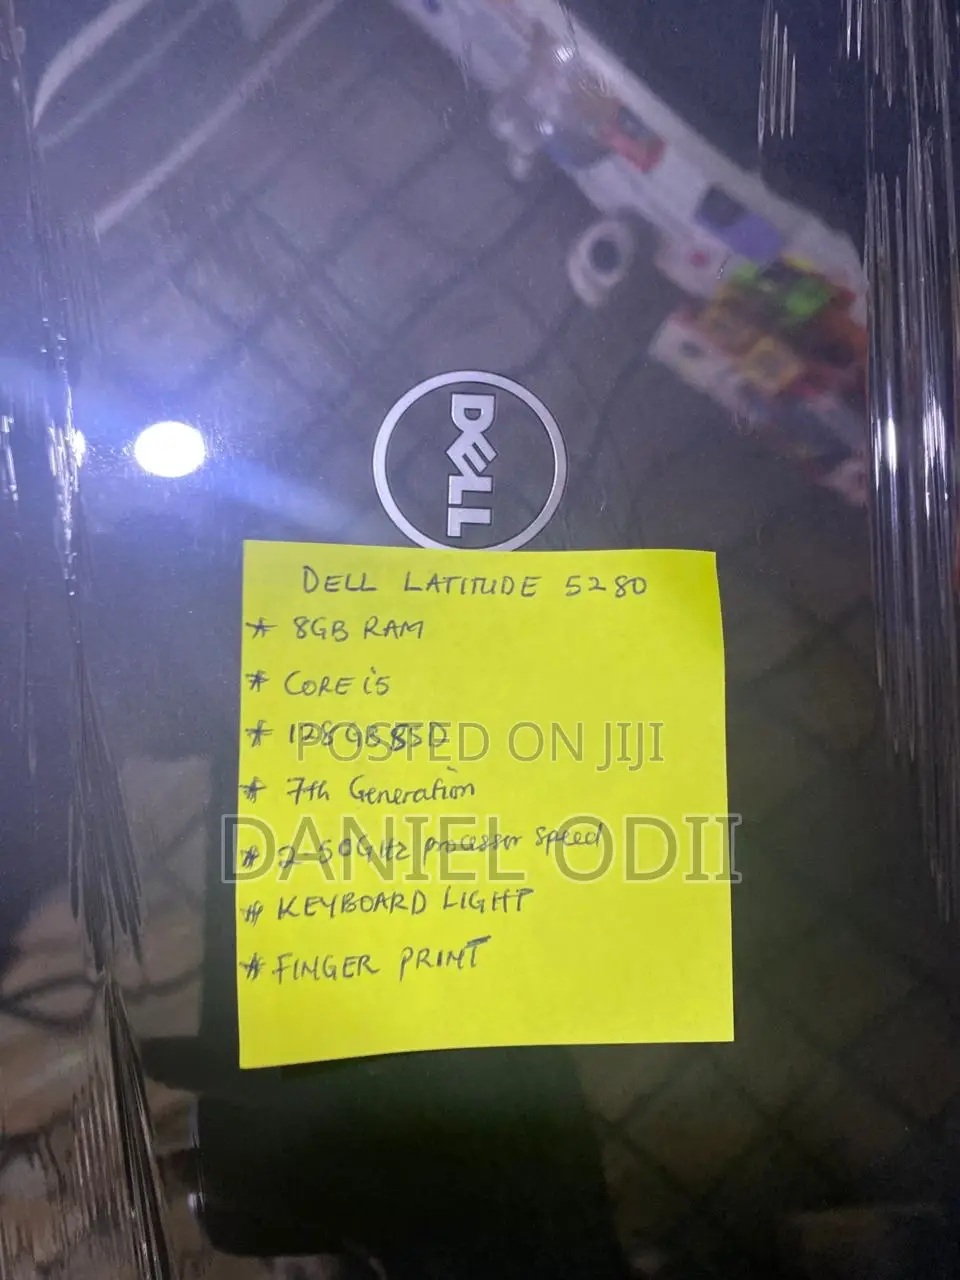 DELL
DELL LATITUDE 5280
* 8GB RAM
* CORE i5
* 128GB SSD
POSTED ON JIJI
* 7th Generation
* 2-50GHz processor speed
DANIEL ODII
* KEYBOARD LIGHT
* FINGER PRINT